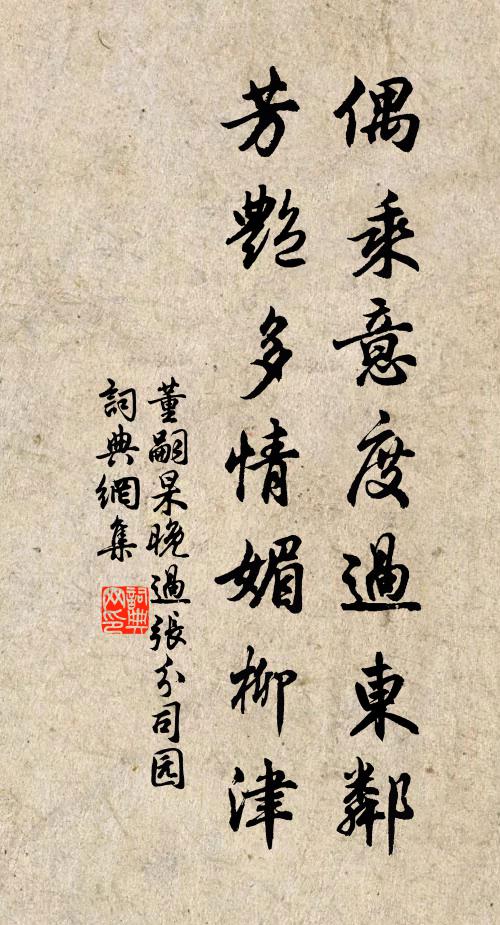 偶乘意度過東鄰
芳艷多情媚柳津
董嗣杲晚過張分司园
詞典網集
詞典網印